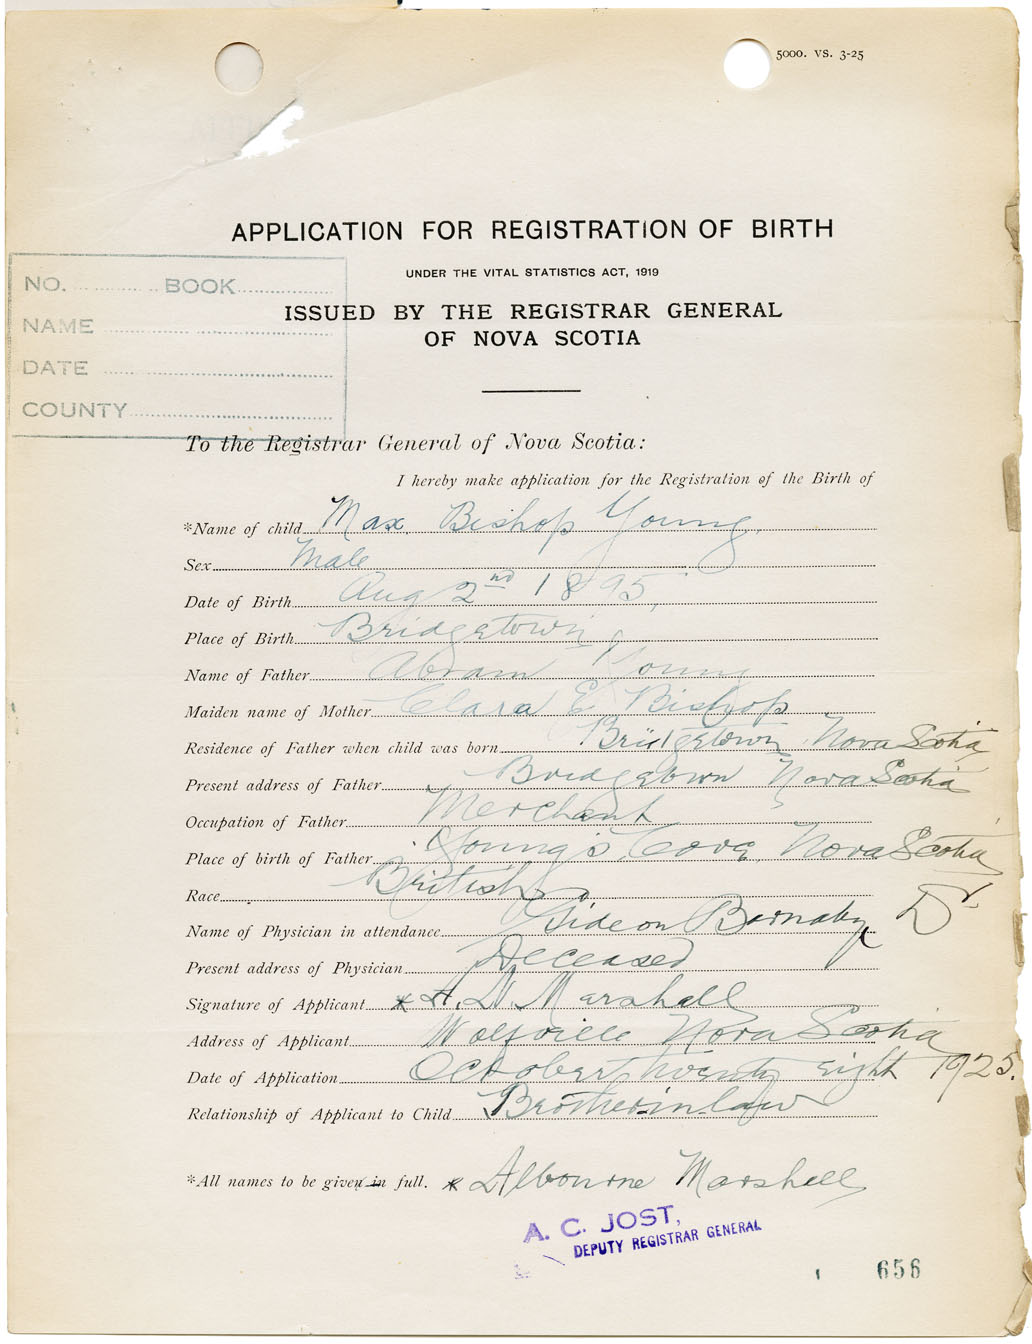 5000. VS. 3-25
APPLICATION FOR REGISTRATION OF BIRTH
UNDER THE VITAL STATISTICS ACT, 1919
ISSUED BY THE REGISTRAR GENERAL
OF NOVA SCOTIA
NO. BOOK
NAME
DATE
COUNTY
To the Registrar General of Nova Scotia:
I hereby make application for the Registration of the Birth of
*Name of child Max Bishop Young
Sex Male
Date of Birth Aug 2nd 1895
Place of Birth Bridgetown
Name of Father Abram Young
Maiden name of Mother Clara E Bishop
Residence of Father when child was born Bridgetown Nova Scotia
Present address of Father Bridgetown Nova Scotia
Occupation of Father Merchant
Place of birth of Father Young's Cove, Nova Scotia
Race British
Name of Physician in attendance Gideon Barnaby Dr
Present address of Physician Deceased
Signature of Applicant * A. W. Marshall
Address of Applicant Wolfville Nova Scotia
Date of Application October twenty eight 1925.
Relationship of Applicant to Child Brother in law
*All names to be given in full. * Albourne Marshall
A. C. JOST,
DEPUTY REGISTRAR GENERAL
656